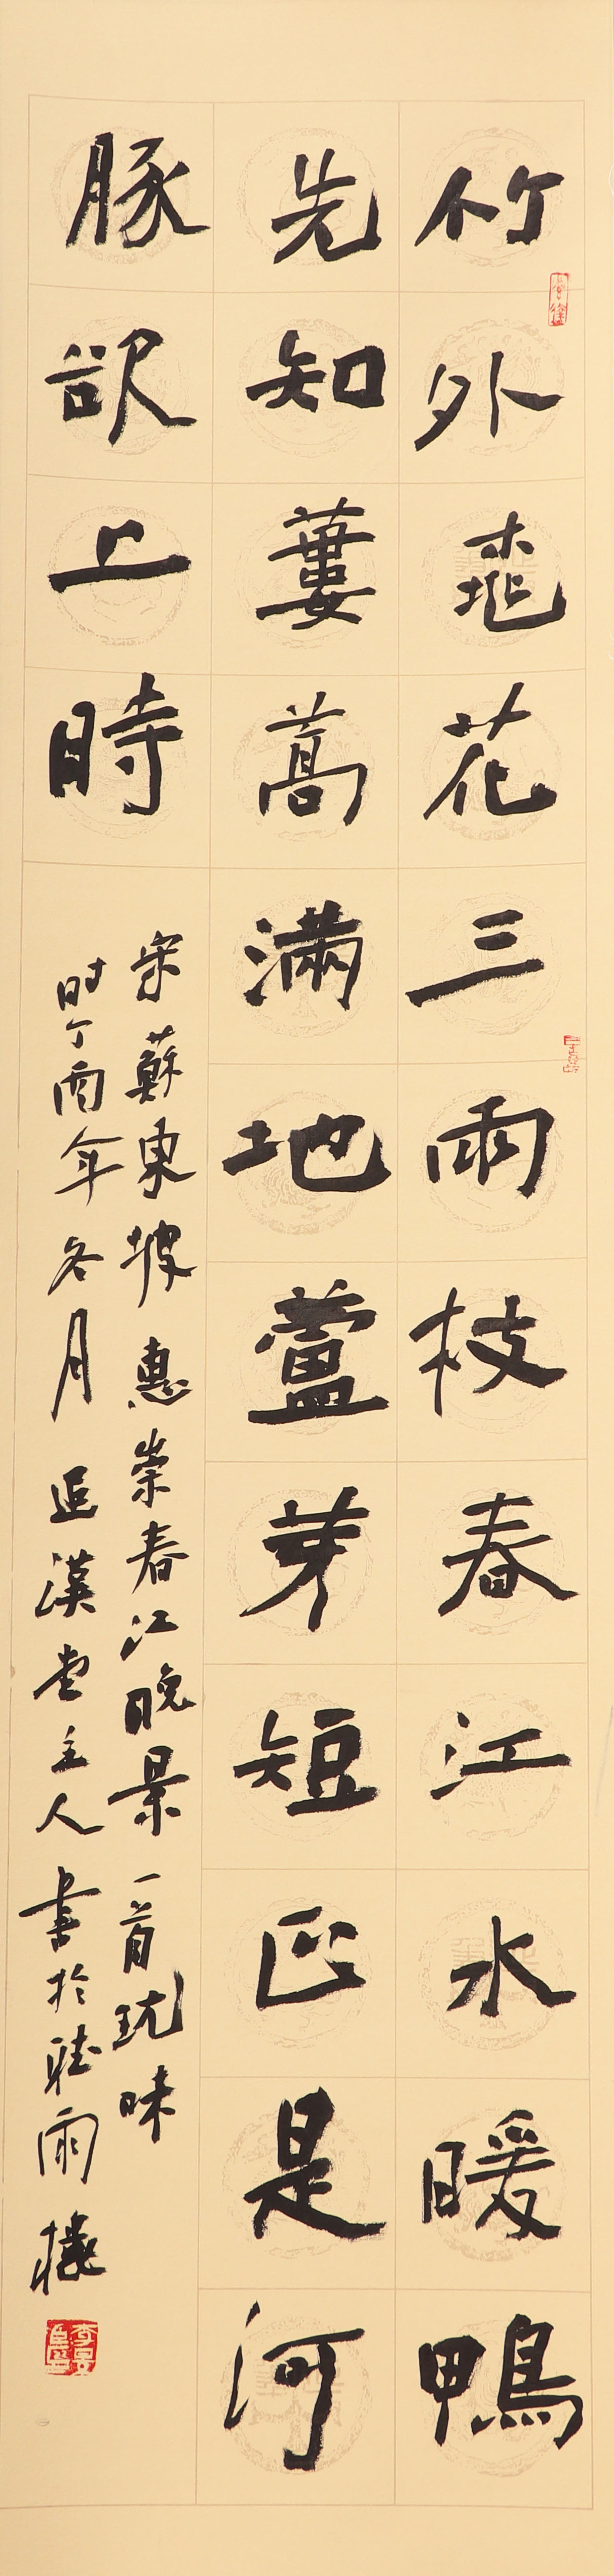 竹外桃花三兩枝春江水暖鴨
先知蔞蒿滿地蘆芽短正是河
豚欲上時
宋蘇東坡惠崇春江晚景一首玩味
时丁酉年冬月追漢堂主人書於聽雨樓